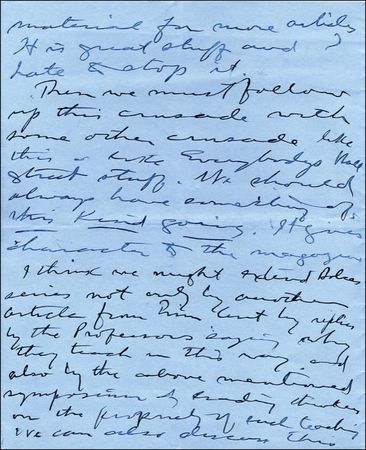 material for more articles
It is great stuff and I
hate to stop it.
Then we must follow
up this crusade with
some other crusade like
this or like Everybodys Wall
Street stuff. We should
always have something of
this kind going. It gives
character to the magazine
I think we might extend
series not only by another
article from him but by replies
by the Professors saying why
they teach in this way, and
also by the above mentioned
symposium of leading thinkers
on the propriety of such teaching
We can also discuss this